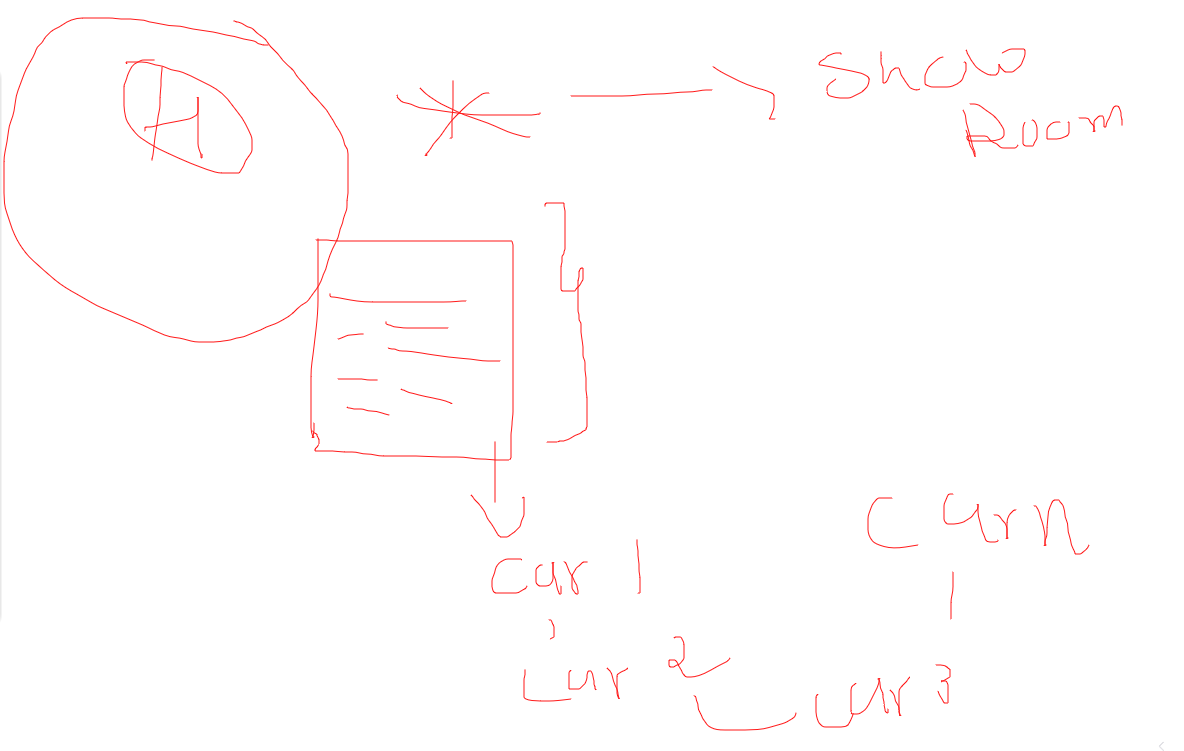 H
Show
Room
Car n
Car 1
Car 2
Car 3